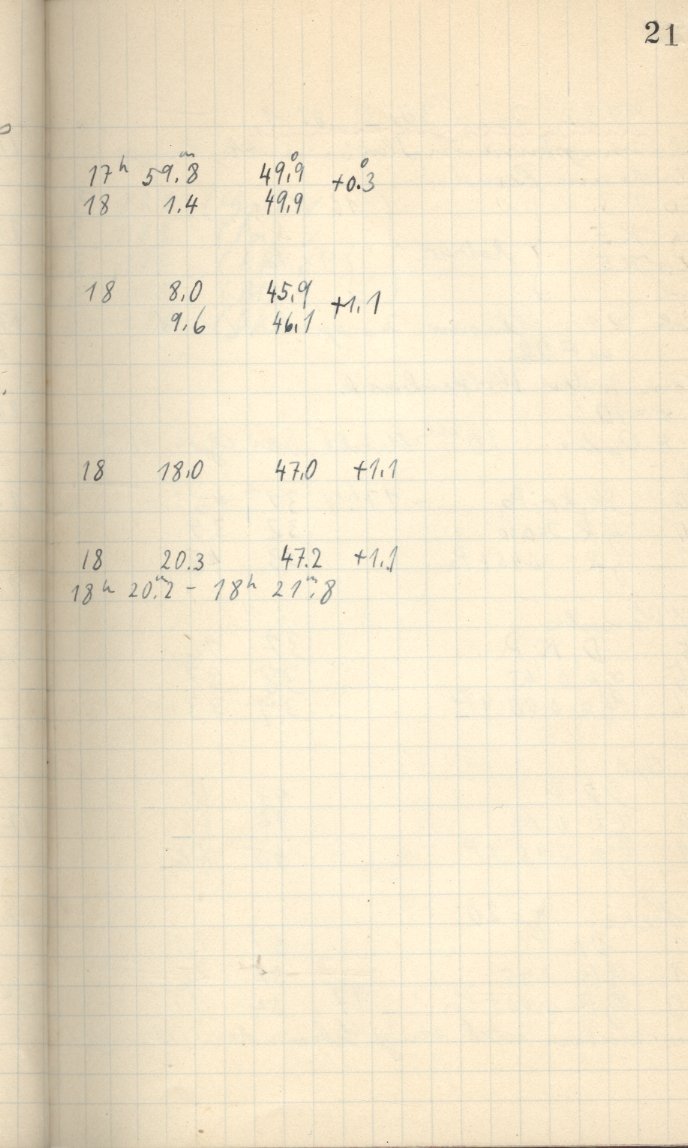 21
17h 59.m8 49.°9 +0.°3
18 1.4 49.9
18 8.0 45.9 +1.1
9.6 46.1
18 18.0 47.0 +1.1
18 20.3 47.2 +1.1
18h 20.m2 - 18h 21.m8